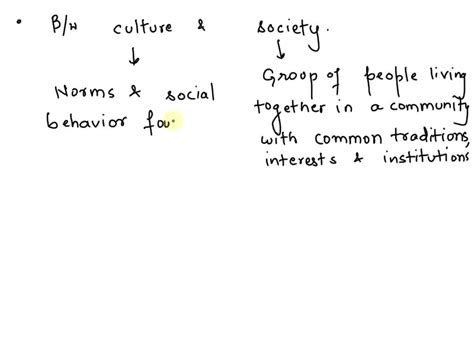 • B/w culture & society.
↓ ↓
Norms & social
behavior fou
Group of people living
together in a community
with common traditions,
interests & institutions